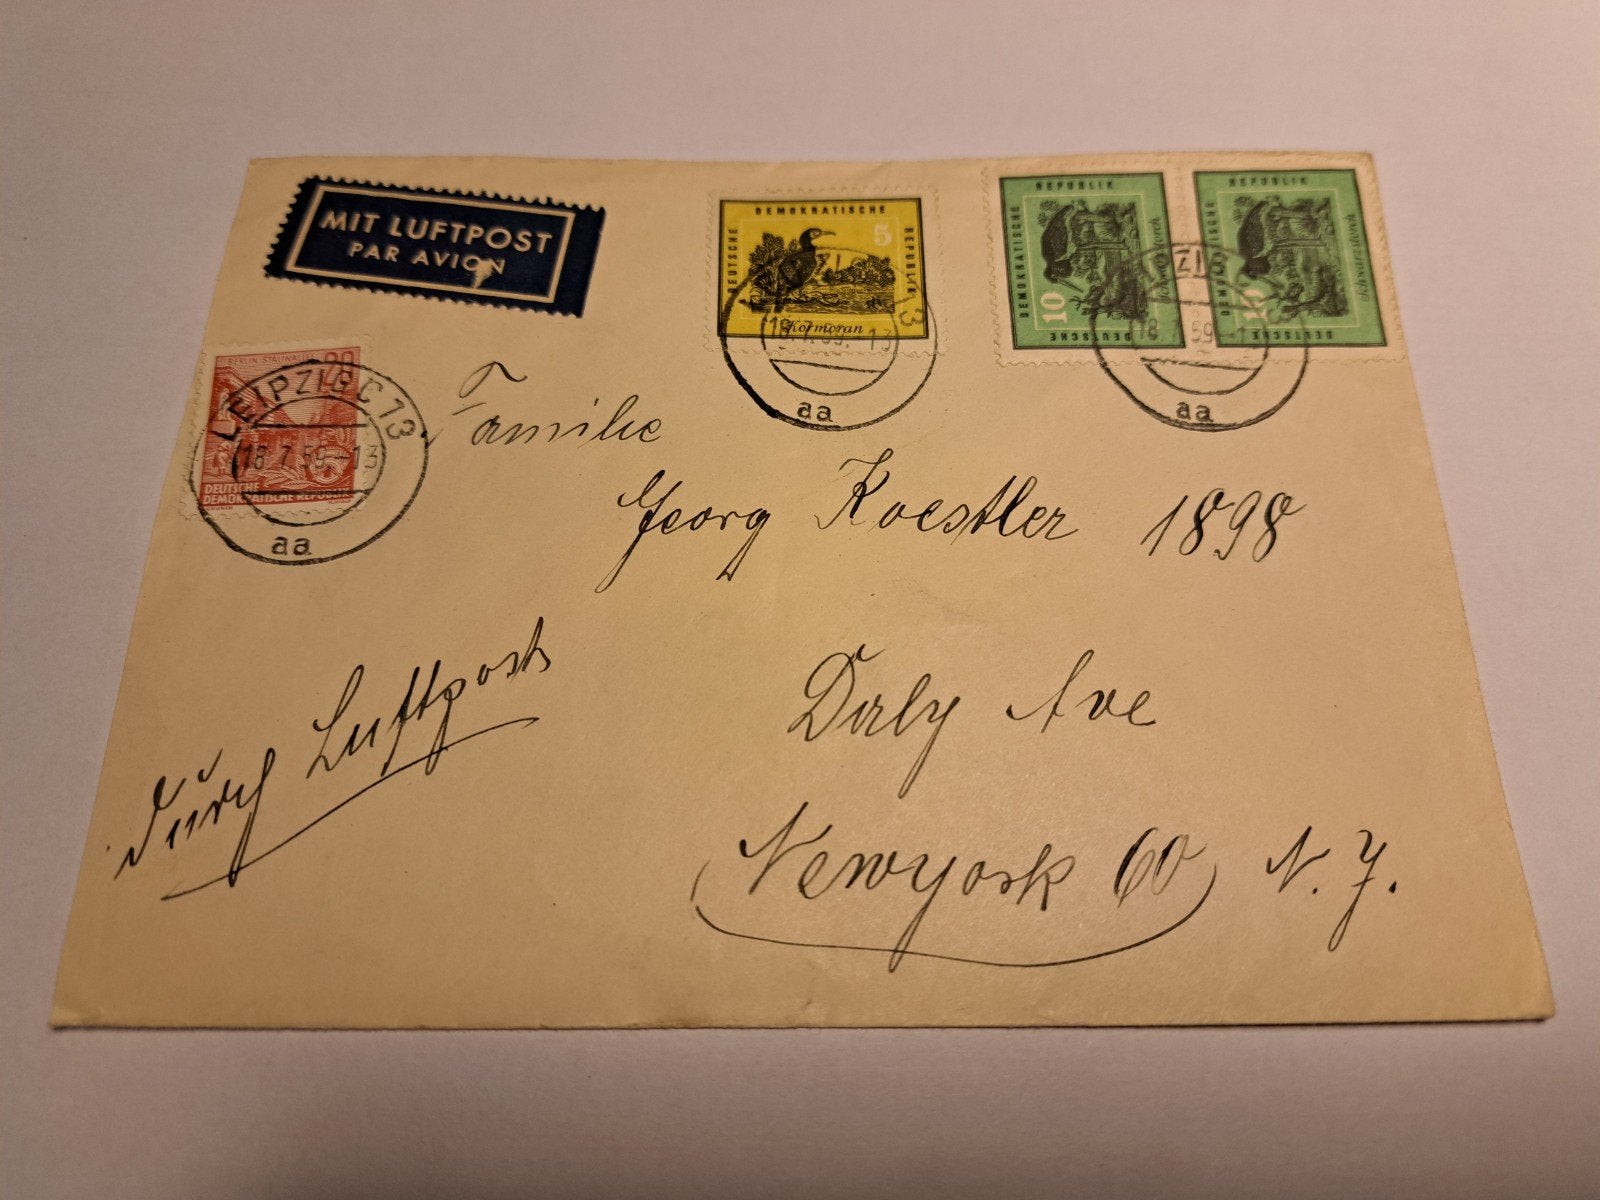 MIT LUFTPOST
PAR AVION
DEUTSCHE DEMOKRATISCHE REPUBLIK
5
Kormoran
LEIPZIG C 13
18.7.59.-13
aa
DEUTSCHE DEMOKRATISCHE REPUBLIK
10
Schwarzstorch
DEUTSCHE DEMOKRATISCHE REPUBLIK
10
Schwarzstorch
18.7.59.-1
aa
BERLIN·STALINALLEE
20
LEIPZIG C 13
18.7.59.-13
DEUTSCHE
DEMOKRATISCHE REPUBLIK
aa
Familie
Georg Koestler 1898
Daly Ave
Newyork 60 N. J.
Durch Luftpost